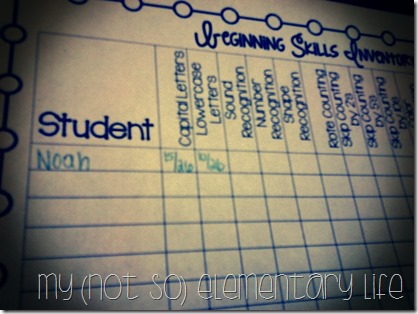 Beginning Skills Inventory
Student
Capital Letters
Lowercase
Letters
Sound
Recognition
Number
Recognition
Shape
Recognition
Rote Counting
Skip Counting
by 2s
Skip Counting
by 5s
Skip Counting
Noah
15/26
10/26
my (not so) elementary life